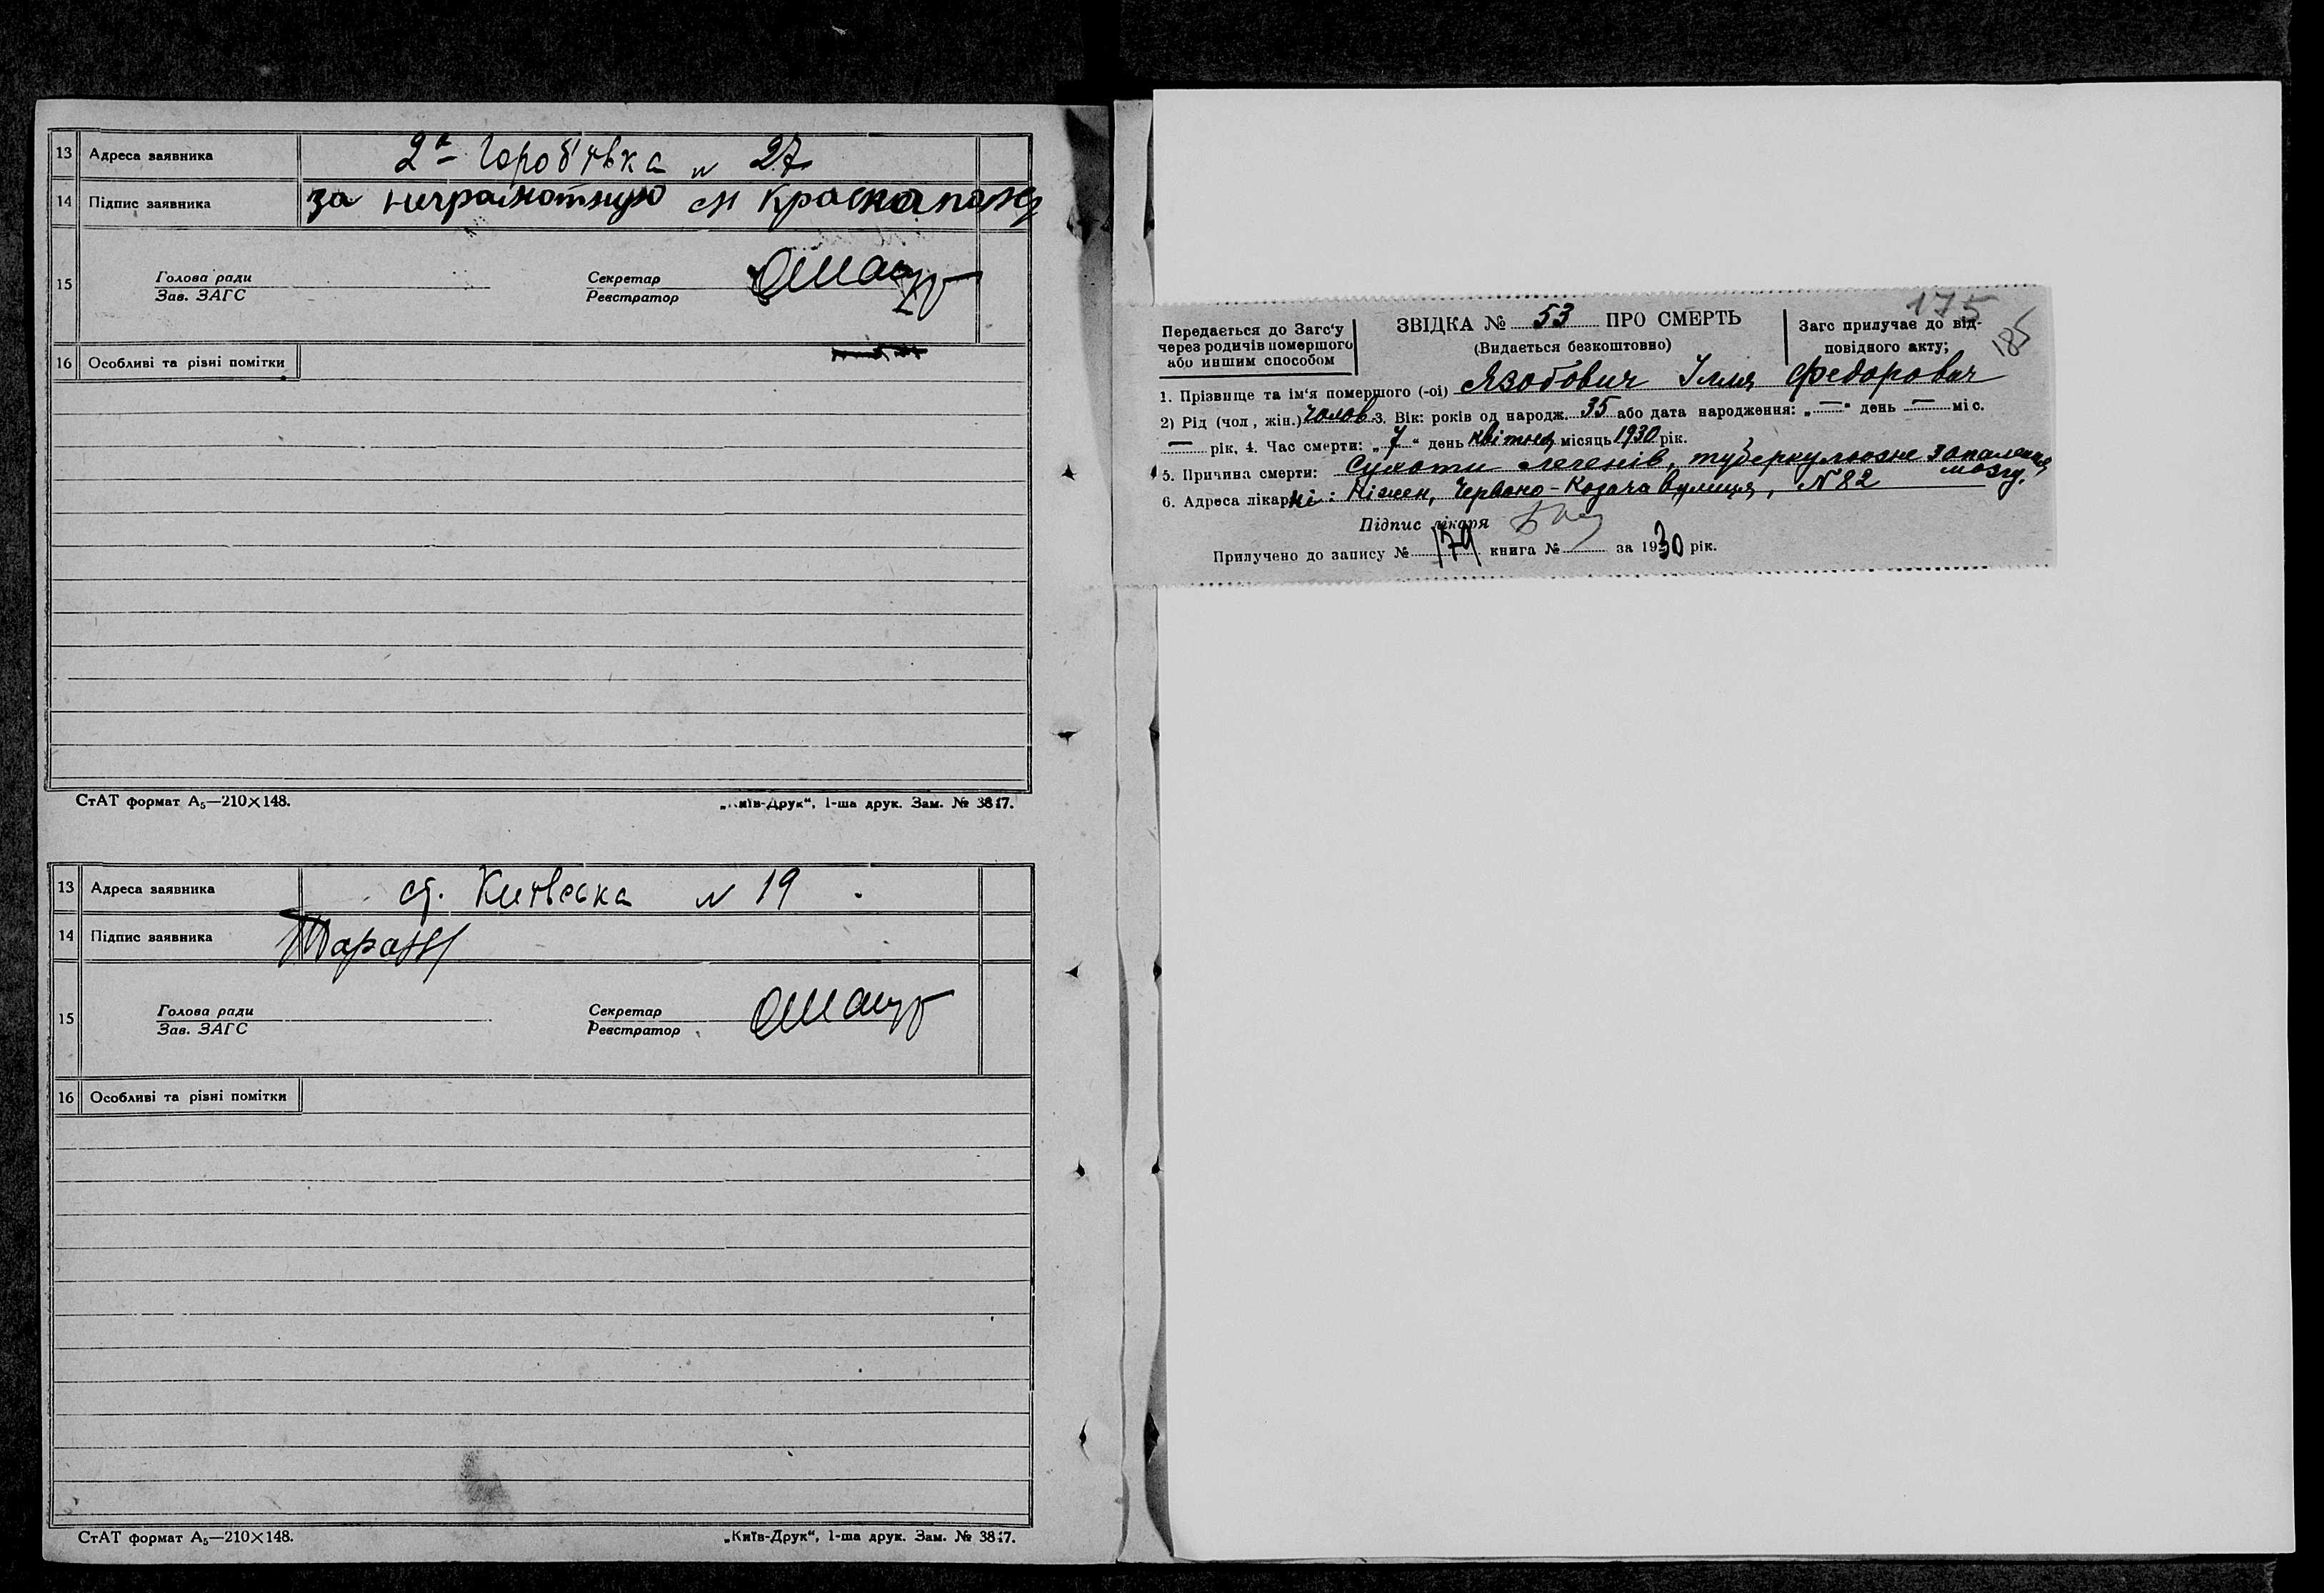 13 Адреса заявника 2а Гороб'ївка № 27
14 Підпис заявника за неграмотную
15 Голова ради Зав. ЗАГС Секретар Реєстратор
16 Особливі та різні помітки
СтАТ формат А5—210×148. „Київ-Друк“, 1-ша друк. Зам. № 3817.
13 Адреса заявника ст. Київська № 19
14 Підпис заявника Таран
15 Голова ради Зав. ЗАГС Секретар Реєстратор
16 Особливі та різні помітки
СтАТ формат А5—210×148. „Київ-Друк“, 1-ша друк. Зам. № 3817.
175
185
Передається до Загс'у через родичів помершого або иншим способом
ЗВІДКА № 53 ПРО СМЕРТЬ
(Видається безкоштовно)
Загс прилучає до відповідного акту;
1. Прізвище та ім'я помершого (-ої) Язобович Ілля Федорович
2) Рід (чол, жін.) чолов 3. Вік: років од народж. 35 або дата народження: „—“ день — міс.
— рік, 4. Час смерти: „7“ день квітня місяць 1930 рік.
5. Причина смерти: Сухоти легенів, туберкульозне запалення мозгу.
6. Адреса лікарні: Ніжен, Червоно-Козача вулиця, № 82
Підпис лікаря
Прилучено до запису № 179 книга № за 1930 рік.